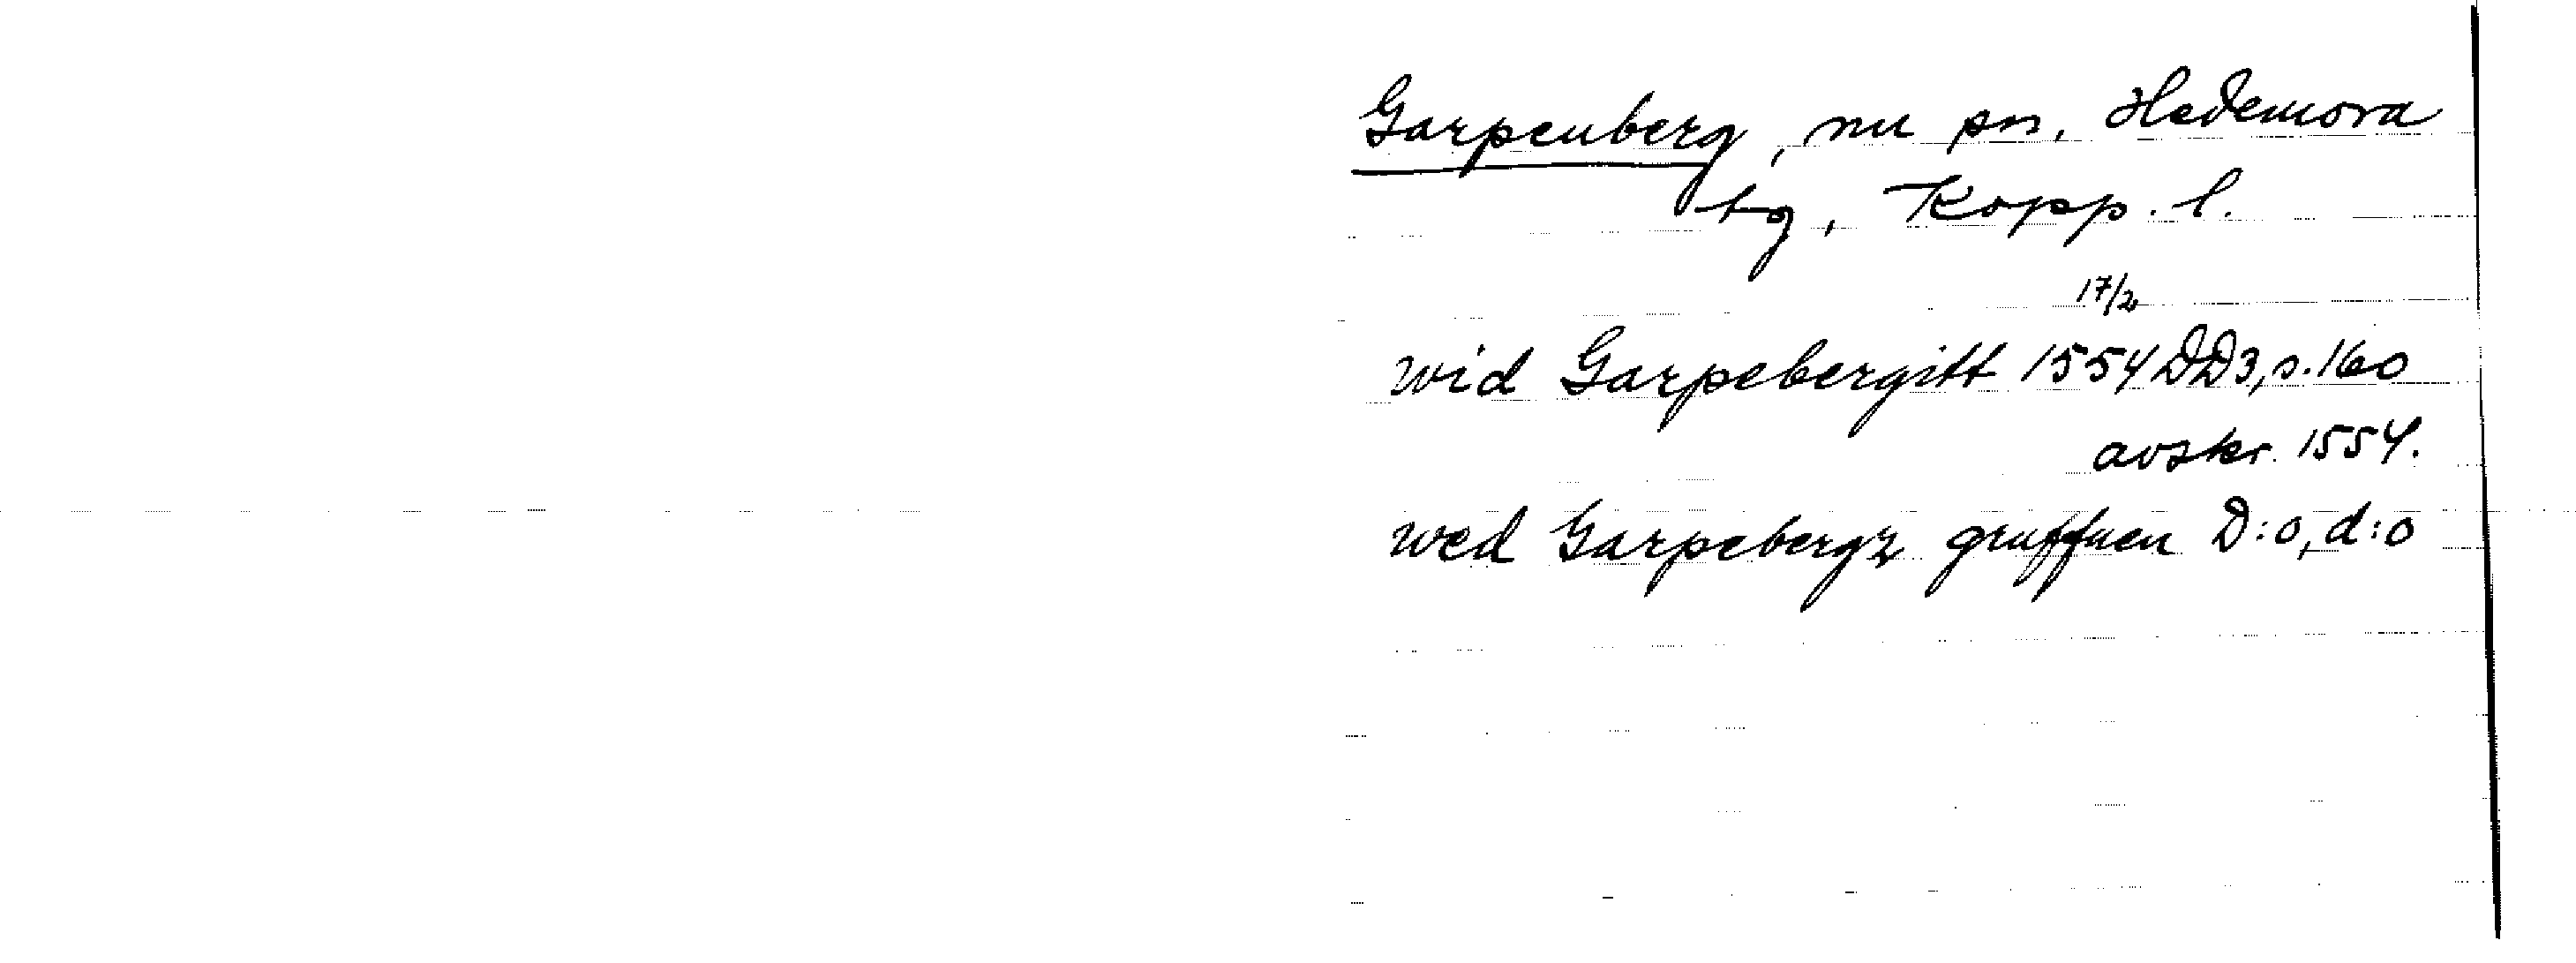 Garpenberg, nu sn, Hedemora
tg, Kopp. l.
17/2
wid Garpebergitt 1554 DD3, s. 160
avskr. 1554.
wed Garpebergz gruffuen D:o, d:o